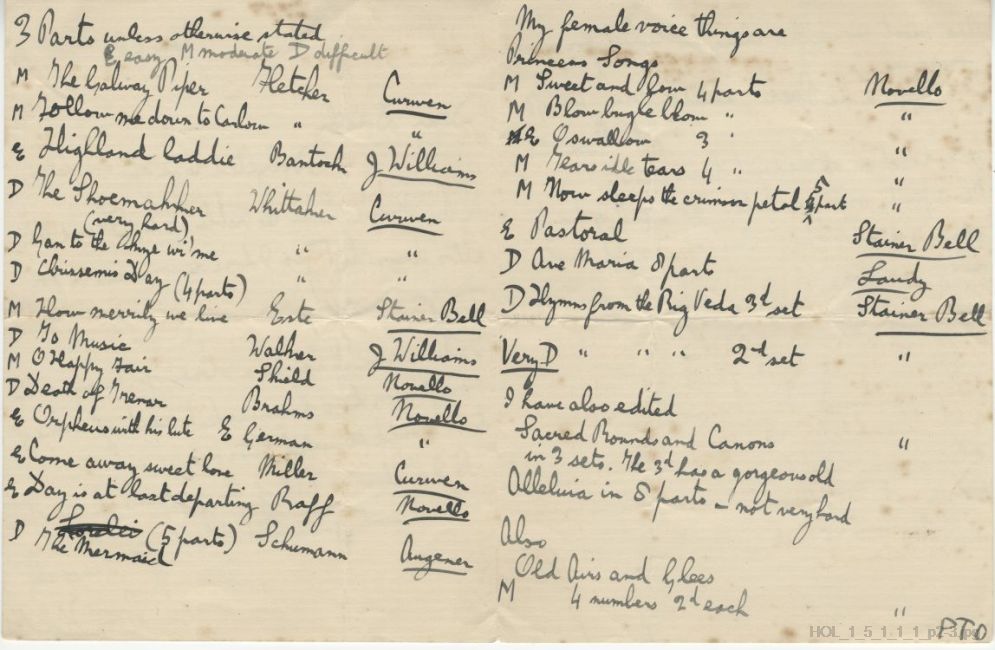 3 Parts unless otherwise stated
E easy M moderate D difficult
M The Galway Piper Fletcher Curwen
M Follow me down to Carlow " "
E Highland laddie Bantock J Williams
D The Shoemakher Whittaker Curwen
(very hard)
D Gan to the kye wi' me " "
D Chrissemis Day (4 parts) " "
M How merrily we live Este Stainer Bell
D To Music Walker J Williams
M O Happy Fair Shield Novello
D Death of Trenar Brahms Novello
E Orpheus with his lute E German "
E Come away sweet love Miller Curwen
E Day is at last departing Raff Novello
D The Mermaid (5 parts) Schumann Augener
My female voice things are
Princess Songs
M Sweet and low 4 parts Novello
M Blow bugle blow " "
E O swallow 3 " "
M Tears idle tears 4 " "
M Now sleeps the crimson petal 5 part "
E Pastoral Stainer Bell
D Ave Maria 8 parts Laudy
D Hymns from the Rig Veda 3d set Stainer Bell
Very D " " " 2d set "
I have also edited
Sacred Rounds and Canons "
in 3 sets. The 3d has a gorgeous old
Alleluia in 8 parts – not very hard
Also
Old Airs and Glees
M 4 numbers 2d each "
PTO
HOL_1_5_1_1_1_p2-3.jpg